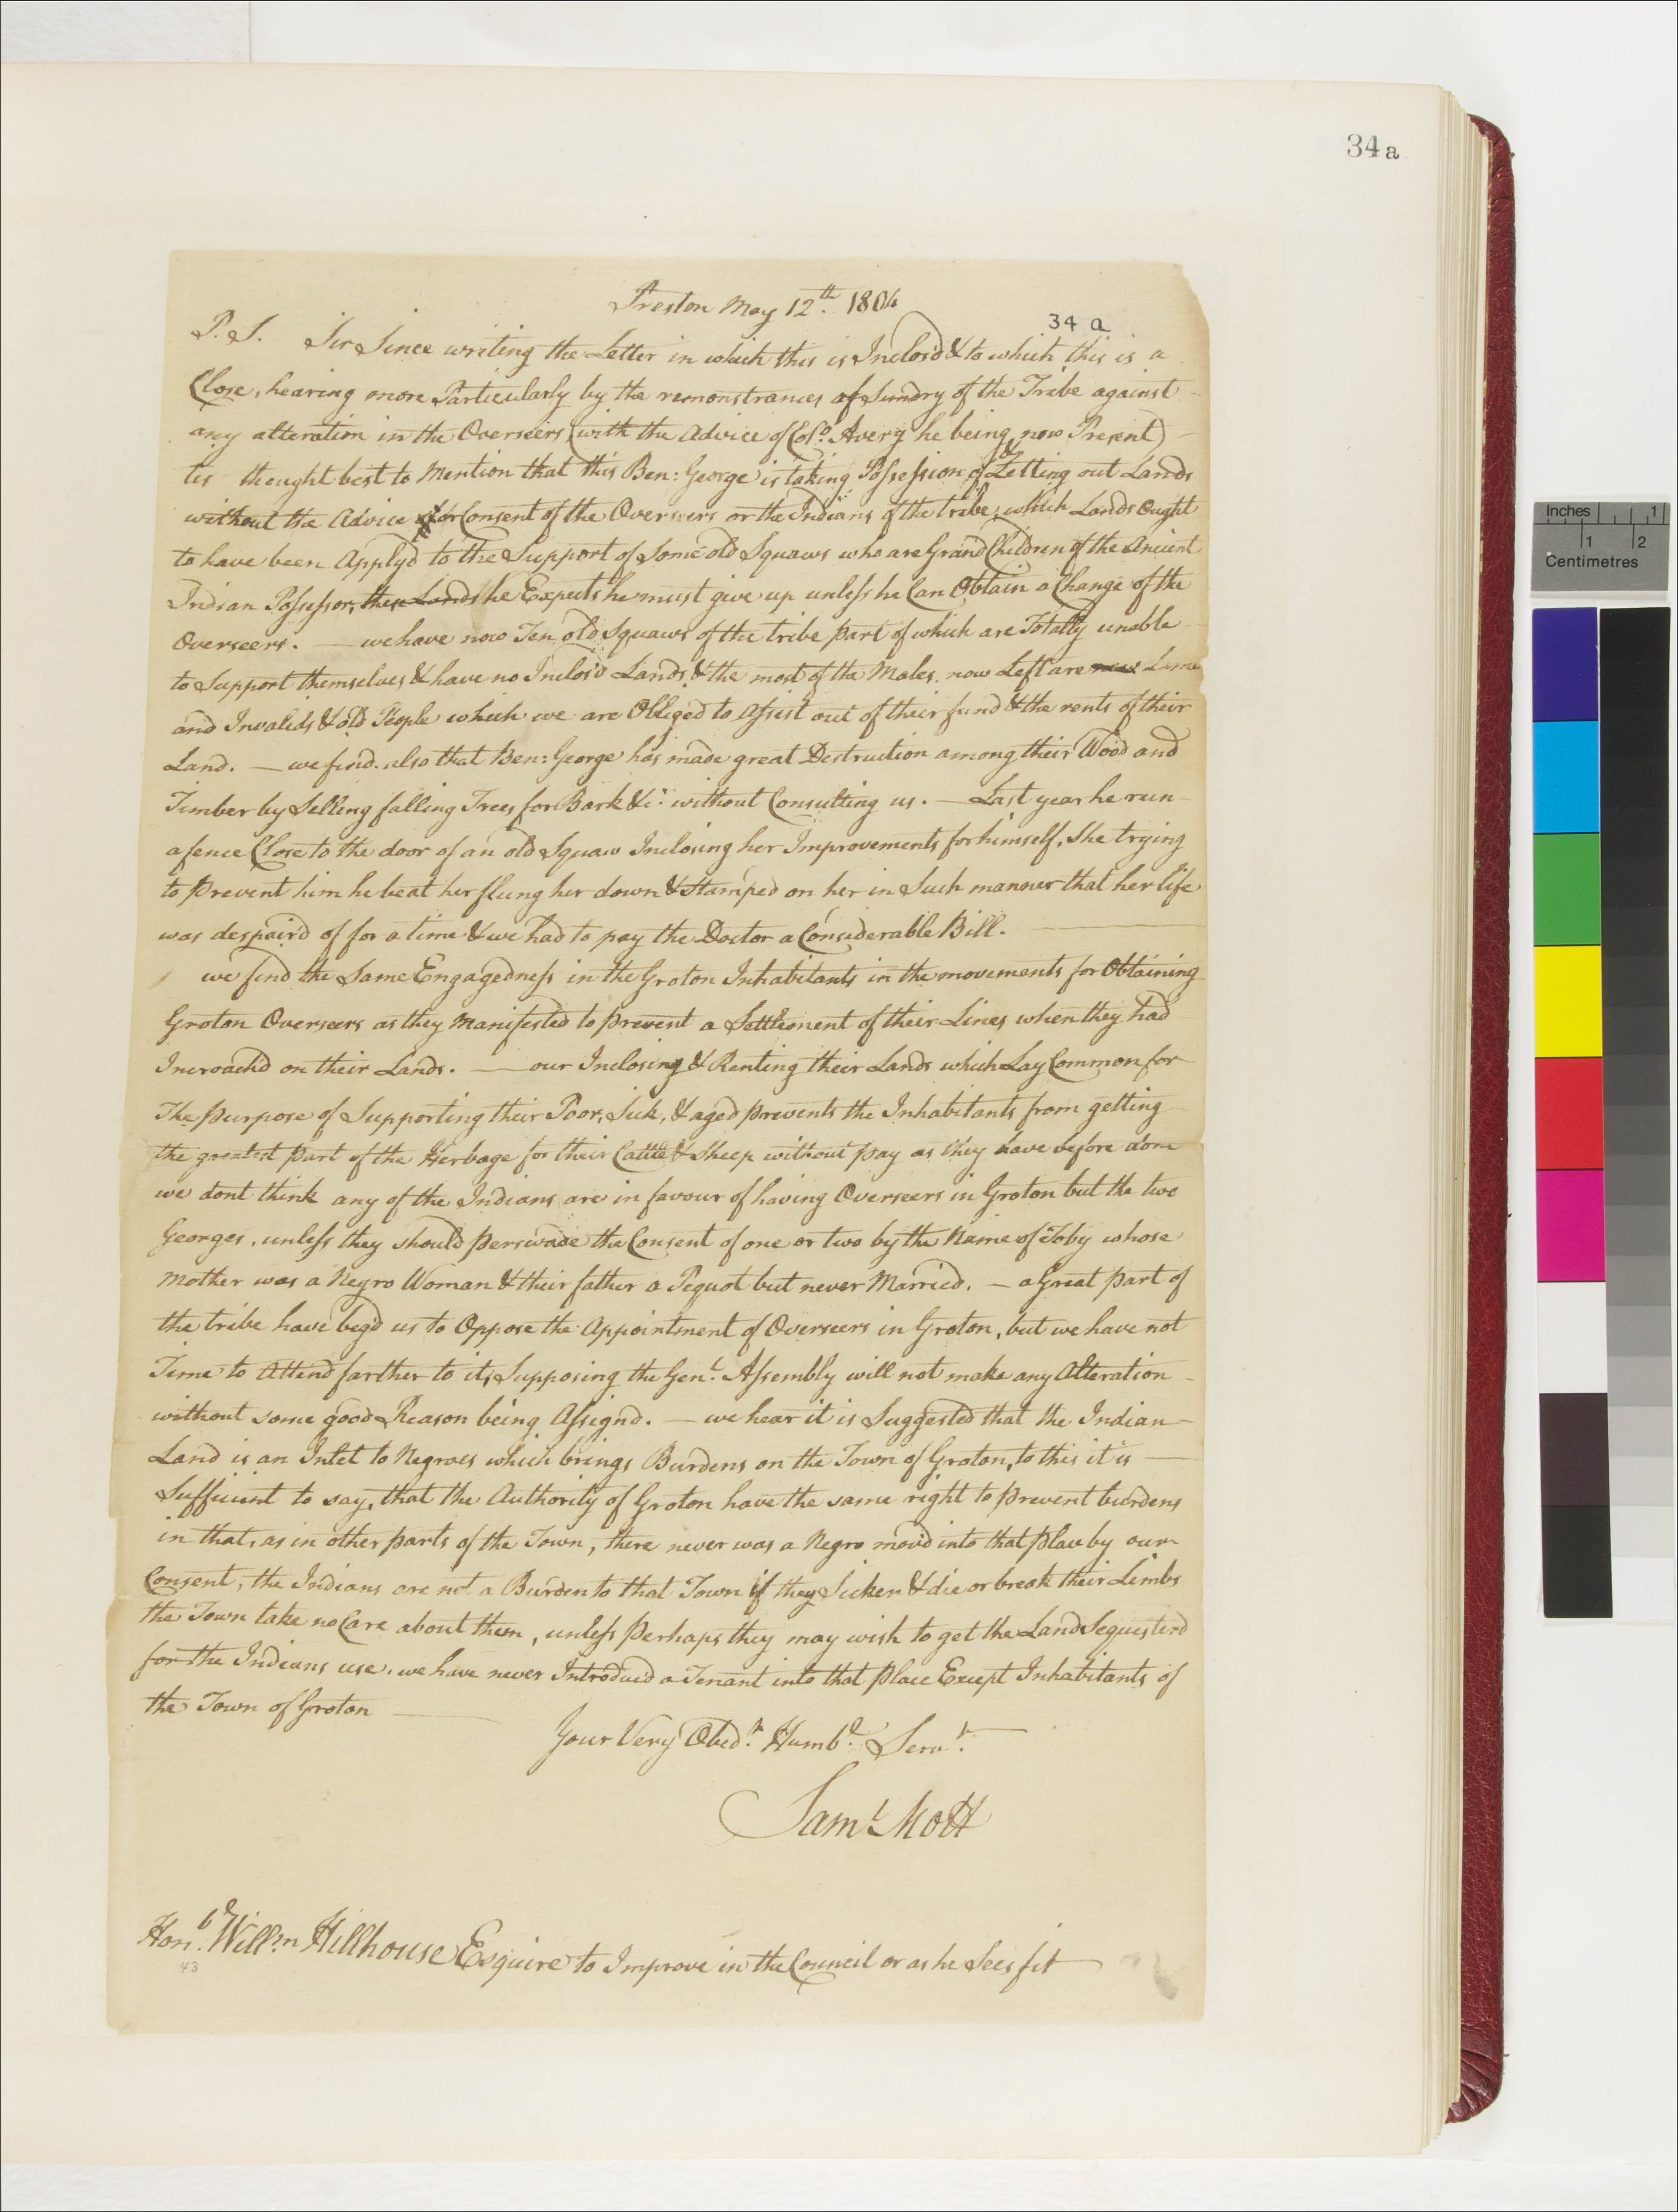 34a
Preston May 12th. 1804
34 a
P. S. Sir Since writing the Letter in which this is Inclos'd & to which this is a
Close, hearing more Particularly by the remonstrances of Sundry of the Tribe against
any alteration in the Overseers (with the Advice of Colo. Avery he being now Present)
tis thought best to Mention that this Ben: George is taking Possession of Letting out Lands
without the Advice or Consent of the Overseers or the Indians of the tribe, which Lands Ought
to have been Applyd to the Support of Some old Squaws who are Grand Children of the Ancient
Indian Possessor, these Lands he Expects he must give up unless he Can Obtain a Change of the
Overseers. — we have now Ten old Squaws of the tribe part of which are Totally unable
to Support themselves & have no Inclos'd Lands, & the most of the Males now Left are Lame
and Invalids & old People which we are Obliged to Assist out of their fund & the rents of their
Land. — we find also that Ben: George has made great Destruction among their Wood and
Timber by Selling falling Trees for Bark &c. without Consulting us. — Last year he run
a fence Close to the door of an old Squaw Inclosing her Improvements for himself, She trying
to prevent him he beat her flung her down & Stamped on her in Such manner that her life
was despair'd of for a time & we had to pay the Doctor a Considerable Bill. —
we find the Same Engagedness in the Groton Inhabitants in the movements for Obtaining
Groton Overseers as they Manifested to prevent a Settlement of their Lines when they had
Incroach'd on their Lands. — our Inclosing & Renting their Lands which Lay Common for
The purpose of Supporting their Poor, Sick, & aged prevents the Inhabitants from getting
the greatest part of the Herbage for their Cattle & Sheep without pay as they have before done
we dont think any of the Indians are in favour of having Overseers in Groton but the two
Georges, unless they should perswade the Consent of one or two by the Name of Toby whose
Mother was a Negro Woman & their father a Pequot but never Married. — a Great part of
the tribe have beg'd us to Oppose the Appointment of Overseers in Groton, but we have not
Time to Attend farther to it, Supposing the Genl. Assembly will not make any Alteration
without some good Reason being Assignd. — we hear it is Suggested that the Indian
Land is an Inlet to Negroes which brings Burdens on the Town of Groton, to this it is —
Sufficient to say, that the Authority of Groton have the same right to prevent burdens
in that, as in other parts of the Town, there never was a Negro mov'd into that place by our
Consent, the Indians are not a Burden to that Town if they Sicken & die or break their Limbs
the Town take no Care about them, unless perhaps they may wish to get the Land Sequesterd
for the Indians use. we have never Introduced a Tenant into that place Except Inhabitants of
the Town of Groton —
Your Very Obedt. Humble. Servt.
Saml Mott
Honble. Willm. Hillhouse Esquire to Improve in the Council or as he Sees fit
43
Inches 1
1 2
Centimetres